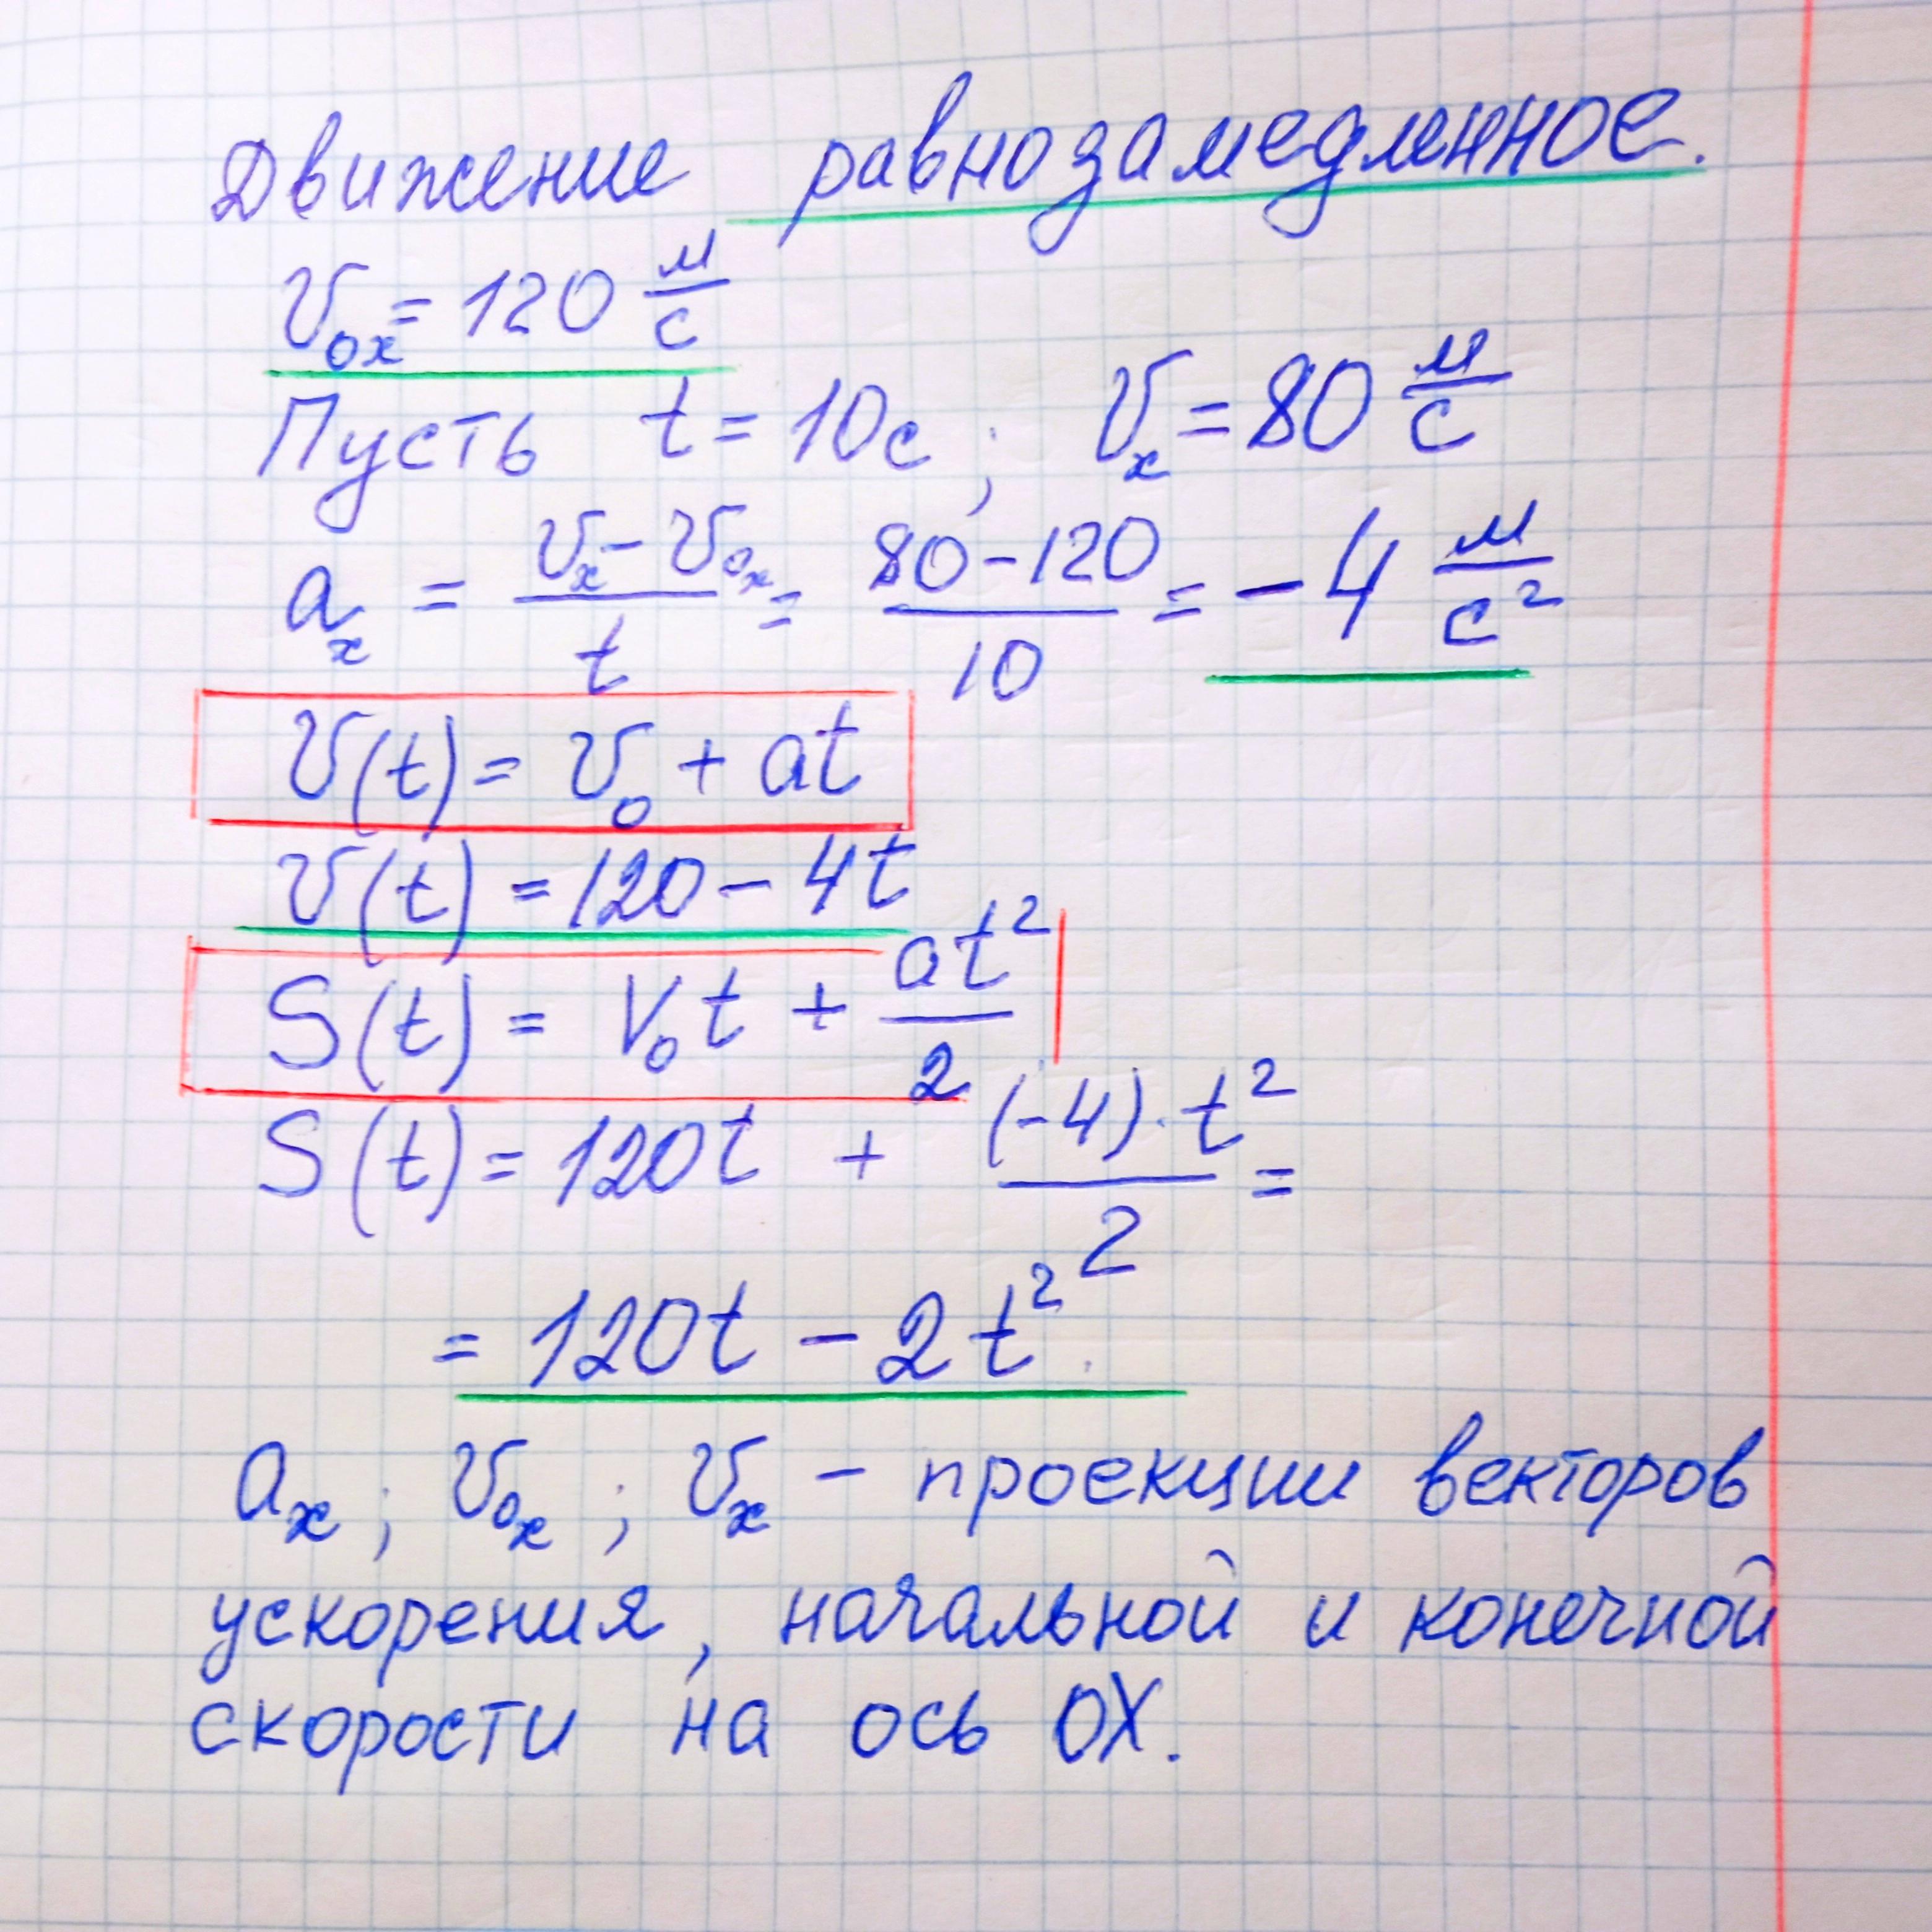 Движение равнозамедленное.
v₀ₓ = 120 м/с
Пусть t = 10с; vₓ = 80 м/с
aₓ = (vₓ − v₀ₓ)/t = (80 − 120)/10 = −4 м/с²
v(t) = v₀ + at
v(t) = 120 − 4t
S(t) = V₀t + at²/2
S(t) = 120t + (−4)·t²/2 =
= 120t − 2t²
aₓ; v₀ₓ; vₓ − проекции векторов
ускорения, начальной и конечной
скорости на ось ОХ.